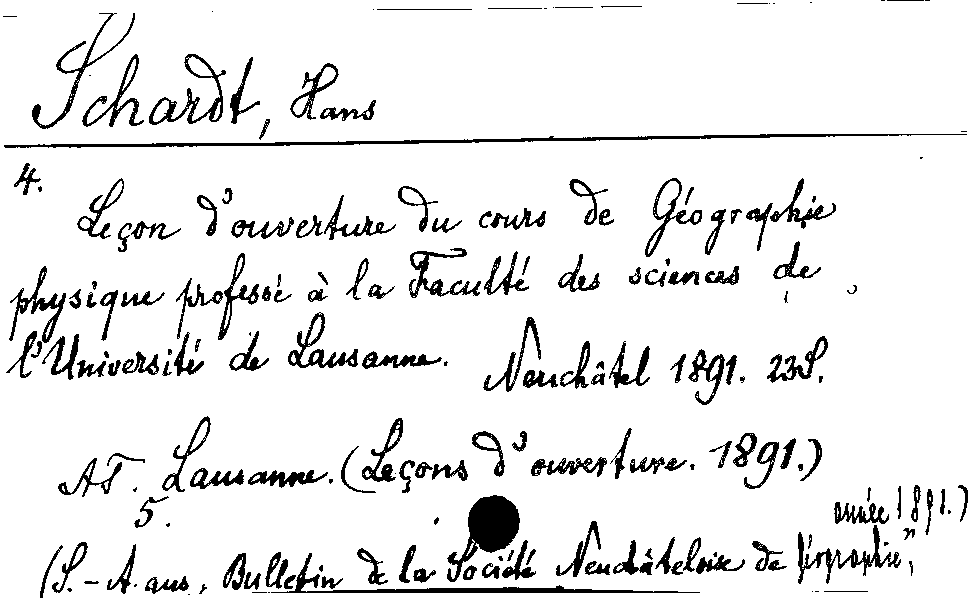 Schardt, Hans
4.
Leçon d'ouverture du cours de Géographie
physique professé à la Faculté des sciences de
l'Université de Lausanne.
Neuchâtel 1891. 23S.
AT. Lausanne. (Leçons d'ouverture. 1891.)
5.
(S.-A. aus, Bulletin de la Société Neuchâteloise de Géographie,"
année 1891.)